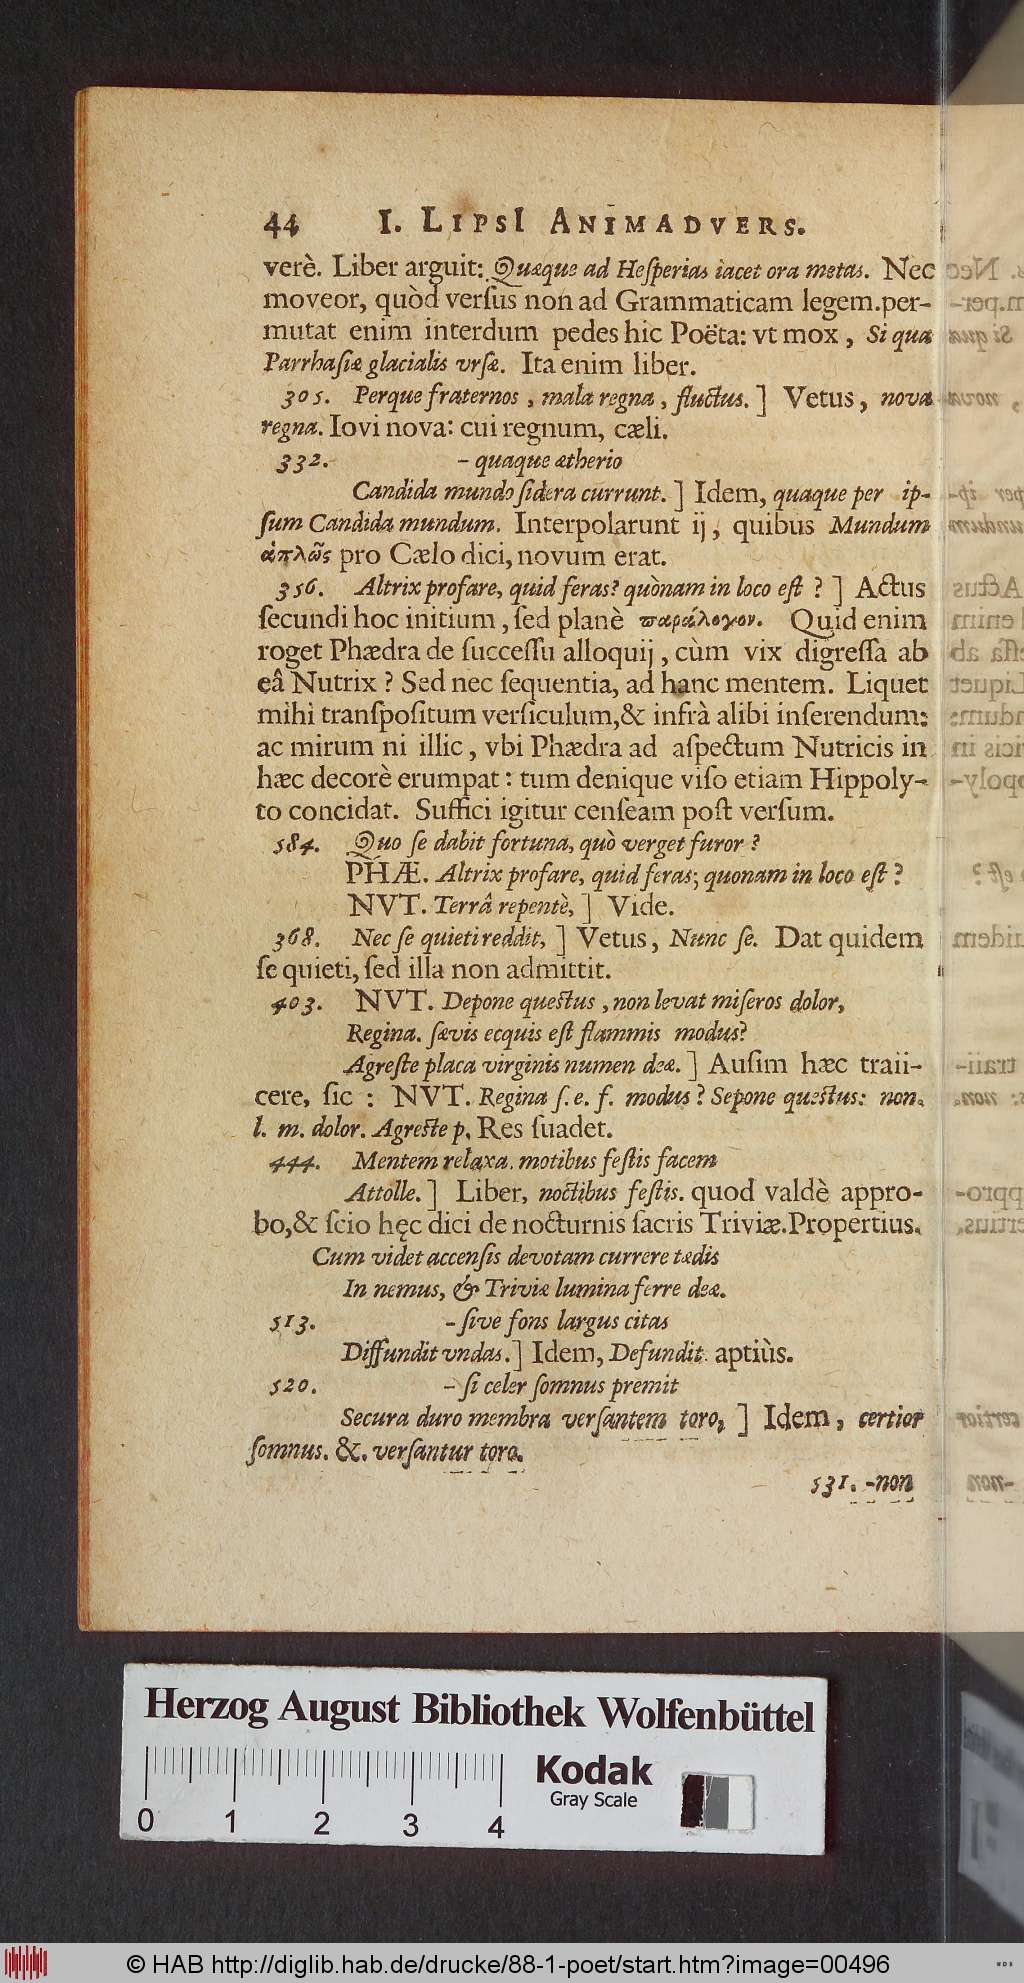 44 I. LIPSI ANIMADVERS.
verè. Liber arguit: Quæque ad Heſperias iacet ora metas. Nec
moveor, quòd verſus non ad Grammaticam legem.per-
mutat enim interdum pedes hic Poëta: vt mox, Si qua
Parrhaſiæ glacialis vrſæ. Ita enim liber.
305. Perque fraternos, mala regna, fluctus.] Vetus, nova
regna. Iovi nova: cui regnum, cæli.
332. – quaque ætherio
Candida mundo ſidera currunt.] Idem, quaque per ip-
ſum Candida mundum. Interpolarunt ij, quibus Mundum
ἁπλῶς pro Cælo dici, novum erat.
356. Altrix profare, quid feras? quònam in loco eſt ? ] Actus
ſecundi hoc initium, ſed planè παράλογον. Quid enim
roget Phædra de ſucceſſu alloquij, cùm vix digreſſa ab
eâ Nutrix ? Sed nec ſequentia, ad hanc mentem. Liquet
mihi tranſpoſitum verſiculum,& infrà alibi inſerendum:
ac mirum ni illic, vbi Phædra ad aſpectum Nutricis in
hæc decorè erumpat: tum denique viſo etiam Hippoly-
to concidat. Suffici igitur cenſeam poſt verſum.
584. Quo ſe dabit fortuna, quò verget furor ?
PHÆ. Altrix profare, quid feras; quonam in loco eſt ?
NVT. Terrâ repentè, ] Vide.
368. Nec ſe quieti reddit, ] Vetus, Nunc ſe. Dat quidem
ſe quieti, ſed illa non admittit.
403. NVT. Depone queſtus, non levat miſeros dolor,
Regina. ſævis ecquis eſt flammis modus?
Agreſte placa virginis numen deæ. ] Auſim hæc traii-
cere, ſic : NVT. Regina ſ. e. f. modus ? Sepone queſtus: non.
l. m. dolor. Agreſte p. Res ſuadet.
444. Mentem relaxa. motibus feſtis facem
Attolle. ] Liber, noctibus feſtis. quod valdè appro-
bo,& ſcio hęc dici de nocturnis ſacris Triviæ.Propertius.
Cum videt accenſis devotam currere tædis
In nemus, & Triviæ lumina ferre deæ.
513. – ſive fons largus citas
Diffundit vndas.] Idem, Defundit. aptiùs.
520. – ſi celer ſomnus premit
Secura duro membra verſantem toro, ] Idem, certior
ſomnus. &. verſantur toro.
531. -non
Herzog August Bibliothek Wolfenbüttel
0 1 2 3 4
Kodak
Gray Scale
© HAB http://diglib.hab.de/drucke/88-1-poet/start.htm?image=00496